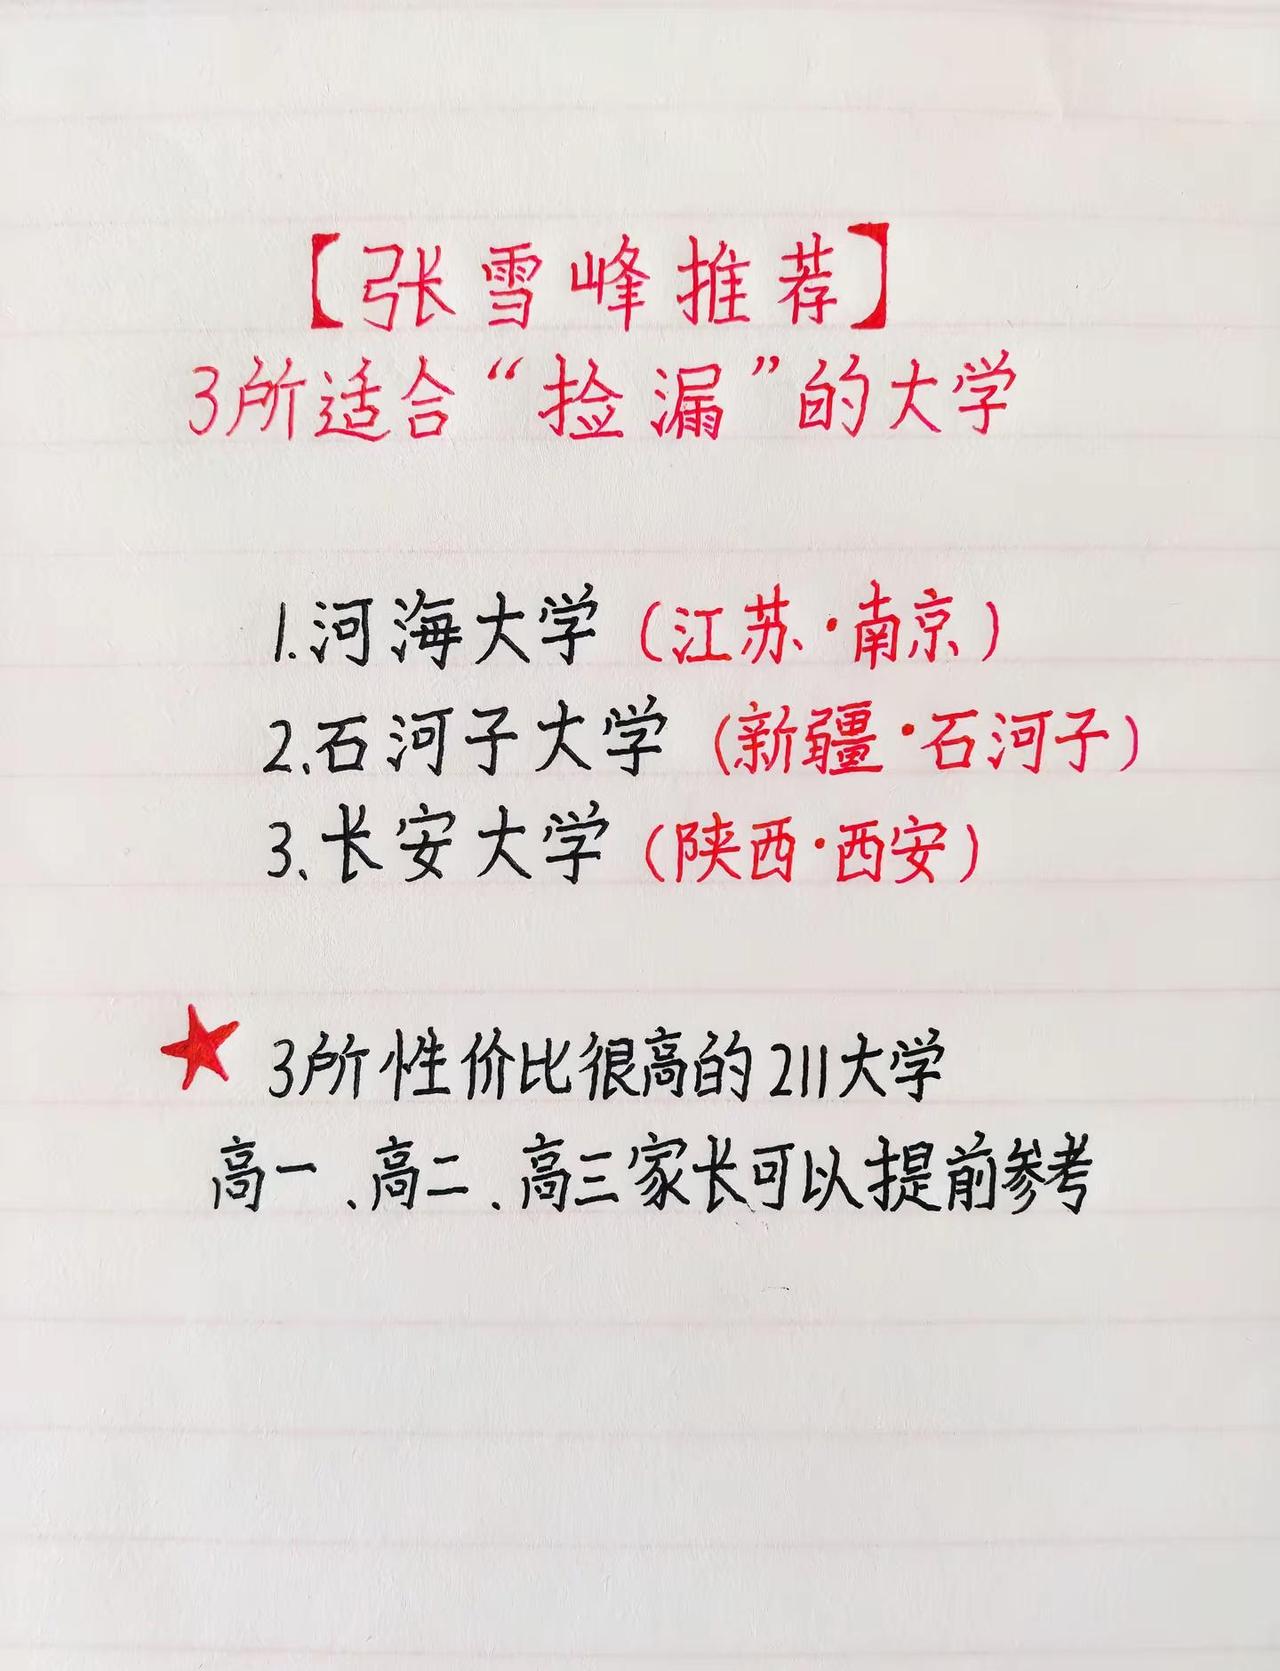 【张雪峰推荐】
3所适合“捡漏”的大学
1.河海大学(江苏·南京)
2.石河子大学(新疆·石河子)
3.长安大学(陕西·西安)
★3所性价比很高的211大学
高一、高二、高三家长可以提前参考